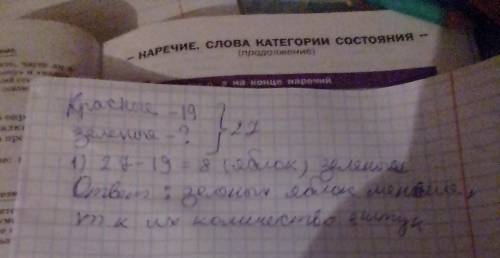 – НАРЕЧИЕ. СЛОВА КАТЕГОРИИ СОСТОЯНИЯ –
(продолжение)
на конце наречий
Красные – 19
Зеленые – ? } 27
1) 27 – 19 = 8 (яблок) зеленые
Ответ: яблок меньше,
т к их количество штук